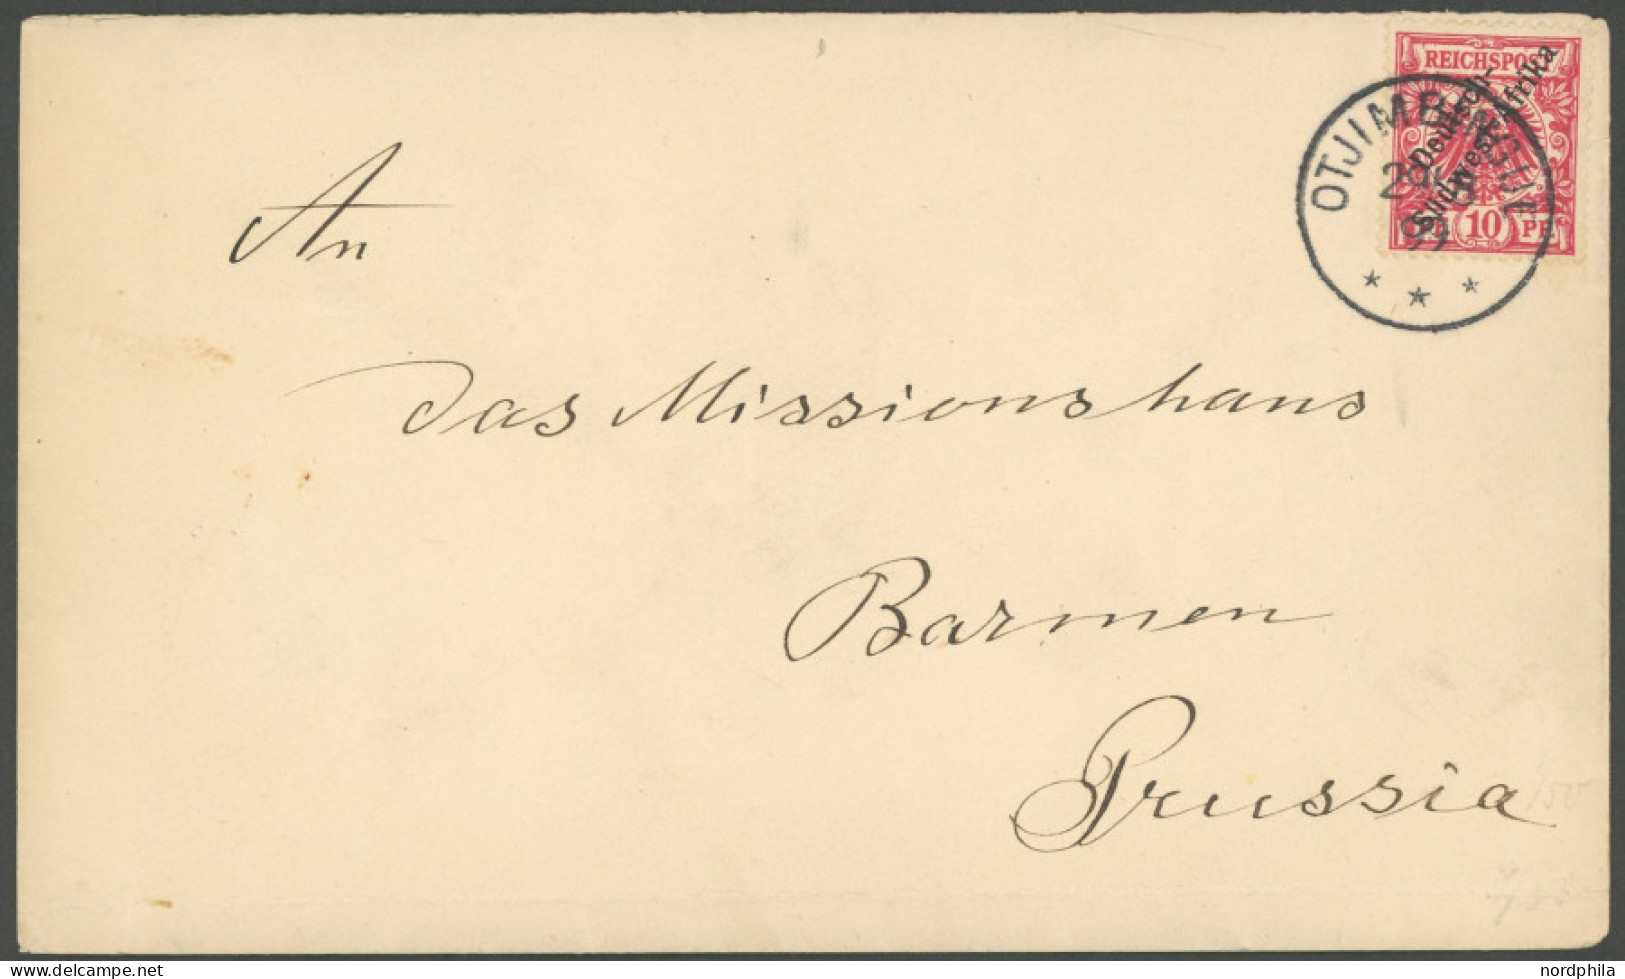 REICHSPOST
Deutsch-
Südwest-Afrika
10 PF
OTJIMBINGUE
99
* * *
An
das Missionshaus
Barmen
Prussia
nordphila